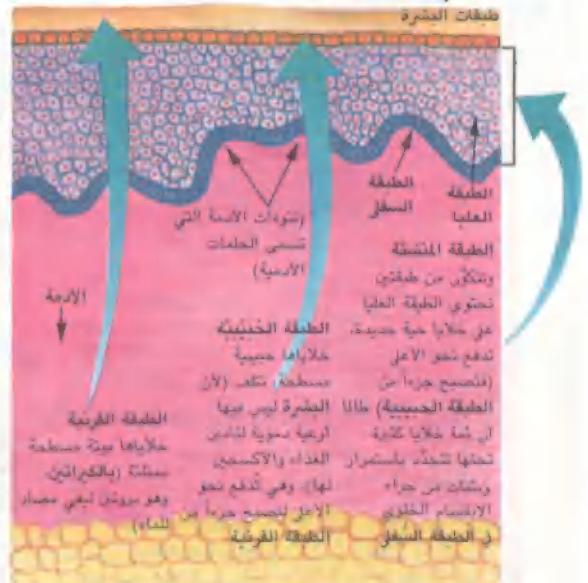 طبقات البشرة
الطبقة
العليا
الطبقة
السفلى
(نتوءات الأدمة التي
تسمى الحلمات
الأدمية)
الأدمة
الطبقة المنتشئة
وتتكوَّن من طبقتين
تحتوي الطبقة العليا
على خلايا حية جديدة،
تدفع نحو الأعلى
(فتصبح جزءاً من
الطبقة الحبيبية) طالما
أن ثمة خلايا
تحتها تتجدّد باستمرار
من جراء
الانقسام الخلوي
في الطبقة السفلى
الطبقة الحُبيبيّة
خلاياها حبيبية
مسطحة، تتلف (لأن
البشرة ليس فيها
أوعية دموية لتأمين
الغذاء والأكسجين
لها). وهي تُدفع نحو
الأعلى لتصبح جزءاً من
الطبقة القرنية
الطبقة القرنية
خلاياها ميتة مسطحة
ممتلئة (بالكيراتين،
وهو بروتين ليفي مضاد
للماء)